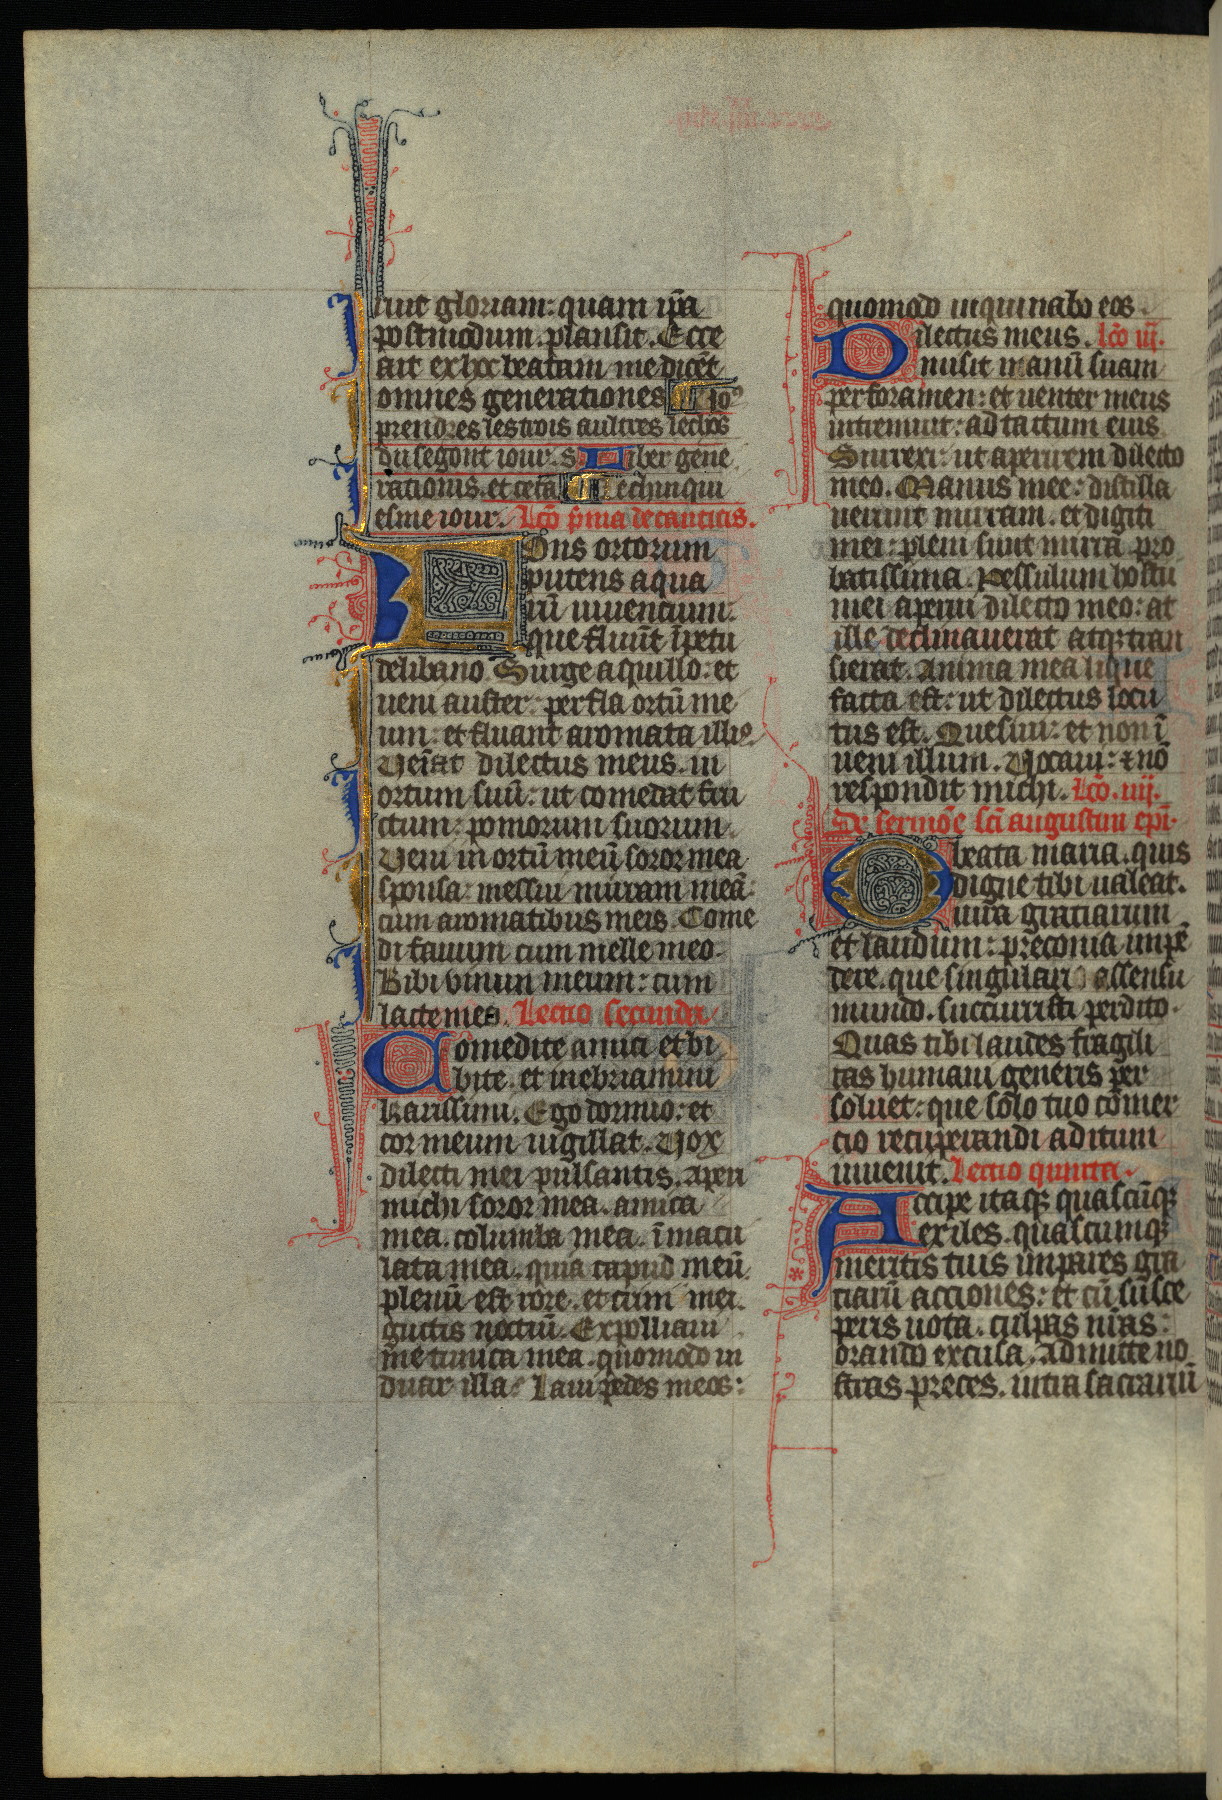 iuit gloriam: quam ip̄a
postmodum plansit. Ecce
ait ex hoc beatam me dicēt
omnes generationes
prendres les trois aultres lechōs
du segont iour. s. Liber gene
rationis. et cetā Le chinqui
esme iour. Lcō p̄ma de canticis.
Fons ortorum
puteus aqua
rū uiuentium:
que fluūt īpetu
de libano. Surge aquillo: et
ueni auster: perfla ortū me
um: et fluant aromata illiꝰ.
Ueīat dilectus meus. in
ortum suū: ut comedat fru
ctum: pomorum suorum.
Veni in ortū meū soror mea
sponsa: messui mirram meā:
cum aromatibus meis. Come
di fauum cum melle meo.
Bibi vinum meum: cum
lacte meo. Lectio secunda.
Comedite amici et bi
bite. et inebriamini
karissimi. Ego dormio: et
cor meum uigillat. Vox
dilecti mei pulsantis. aperi
michi soror mea. amica
mea. columba mea. īmacu
lata mea. quia capud meū
plenū est rore. et cīnni mei.
guttis noctiū. Expolliaui
me tunica mea. quomodo in
duar illa: Laui pedes meos:
quomodo inquinabo eos.
Dilectus meus. Lcō iij.
misit manū suam
per foramen: et uenter meus
intremuit: ad tactum eius
Surrexi: ut aperirem dilecto
meo. Manus mee: distilla
uerunt mirram. et digiti
mei: pleni sunt mirra pro
batissima. Pessulum hostii
mei aperui dilecto meo: at
ille declinauerat atqꝫ tran
sierat. Anima mea lique
facta est: ut dilectus locu
tus est. Quesiui: et non ī
ueni illum. Vocaui: et nō
respondit michi. Lcō. iiij.
De sermōe scī augustini epī.
O beata maria. quis
digne tibi ualeat.
iura graciarum
et laudum: preconia impē
dere. que singulari assensu
mundo. succurristi perdito.
Quas tibi laudes fragili
tas humani generis per
soluet: que sōlo tuo cōmer
cio recuperandi aditum
inuenit. Lectio quinta.
Accipe itaqꝫ quascūqꝫ
exiles. quascumqꝫ
meritis tuis impares gra
ciarū acciones: et cū susce
peris uota. culpas nr̄as:
orando excusa. Admitte no
stras preces. intra sacrariū